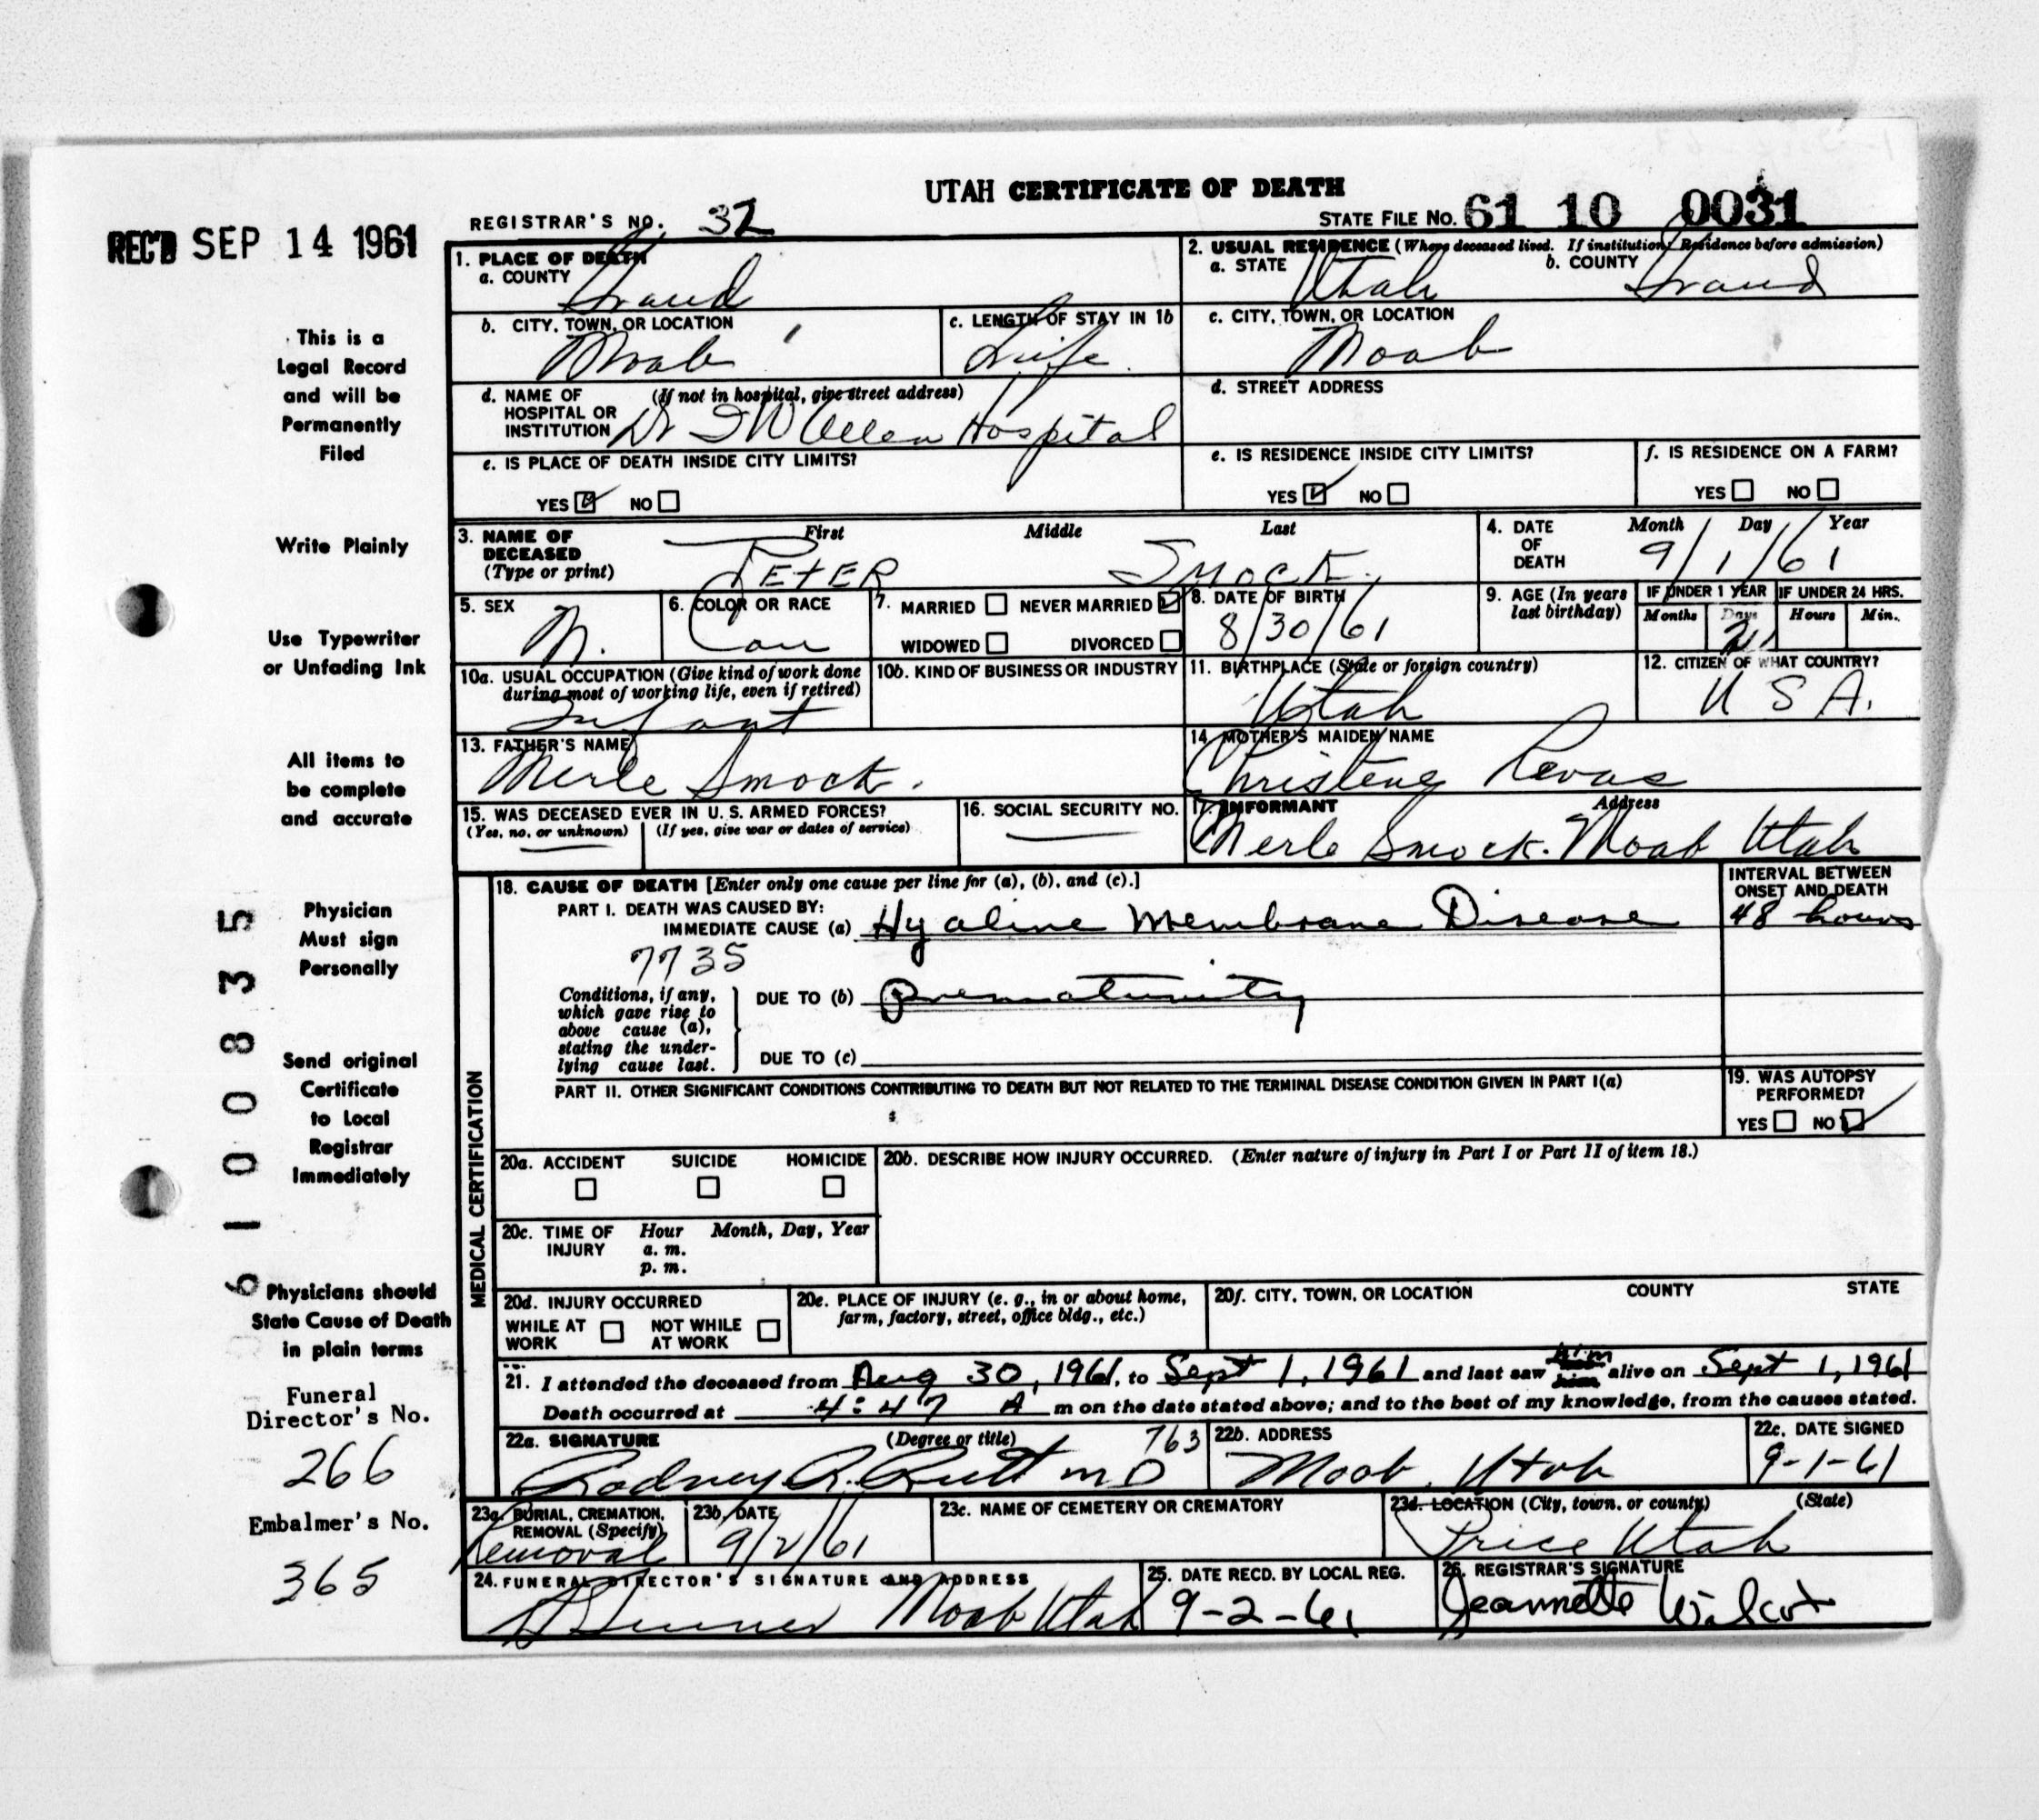 UTAH CERTIFICATE OF DEATH
REC'D SEP 14 1961
REGISTRAR'S NO. 32
STATE FILE NO. 61 10 0031
This is a
Legal Record
and will be
Permanently
Filed
Write Plainly
Use Typewriter
or Unfading Ink
All items to
be complete
and accurate
Physician
Must sign
Personally
Send original
Certificate
to Local
Registrar
Immediately
Physicians should
State Cause of Death
in plain terms
6100835
Funeral
Director's No.
266
Embalmer's No.
365
1. PLACE OF DEATH
a. COUNTY
Grand
2. USUAL RESIDENCE (Where deceased lived. If institution: Residence before admission)
a. STATE Utah b. COUNTY Grand
b. CITY, TOWN, OR LOCATION
Moab
c. LENGTH OF STAY IN 1b
Life
c. CITY, TOWN, OR LOCATION
Moab
d. NAME OF (If not in hospital, give street address)
HOSPITAL OR
INSTITUTION Dr I W Allen Hospital
d. STREET ADDRESS
e. IS PLACE OF DEATH INSIDE CITY LIMITS?
YES NO
e. IS RESIDENCE INSIDE CITY LIMITS?
YES NO
f. IS RESIDENCE ON A FARM?
YES NO
3. NAME OF
DECEASED
(Type or print)
First Middle Last
PETER SMOCK
4. DATE
OF
DEATH
Month Day Year
9/1/61
5. SEX
M.
6. COLOR OR RACE
Cau
7. MARRIED NEVER MARRIED
WIDOWED DIVORCED
8. DATE OF BIRTH
8/30/61
9. AGE (In years
last birthday)
IF UNDER 1 YEAR IF UNDER 24 HRS.
Months Days Hours Min.
2
10a. USUAL OCCUPATION (Give kind of work done
during most of working life, even if retired)
Infant
10b. KIND OF BUSINESS OR INDUSTRY
11. BIRTHPLACE (State or foreign country)
Utah
12. CITIZEN OF WHAT COUNTRY?
U S A.
13. FATHER'S NAME
Merle Smock.
14. MOTHER'S MAIDEN NAME
Christene
15. WAS DECEASED EVER IN U. S. ARMED FORCES?
(Yes, no, or unknown) (If yes, give war or dates of service)
16. SOCIAL SECURITY NO.
17. INFORMANT Address
Merle Smock. Moab Utah
MEDICAL CERTIFICATION
18. CAUSE OF DEATH [Enter only one cause per line for (a), (b), and (c).]
INTERVAL BETWEEN
ONSET AND DEATH
PART I. DEATH WAS CAUSED BY:
IMMEDIATE CAUSE (a) Hyaline Membrane Disease 48 hours
7735
Conditions, if any,
which gave rise to
above cause (a),
stating the under-
lying cause last.
DUE TO (b) Prematurity
DUE TO (c)
PART II. OTHER SIGNIFICANT CONDITIONS CONTRIBUTING TO DEATH BUT NOT RELATED TO THE TERMINAL DISEASE CONDITION GIVEN IN PART I(a)
19. WAS AUTOPSY
PERFORMED?
YES NO
20a. ACCIDENT SUICIDE HOMICIDE
20b. DESCRIBE HOW INJURY OCCURRED. (Enter nature of injury in Part I or Part II of item 18.)
20c. TIME OF
INJURY
Hour Month, Day, Year
a. m.
p. m.
20d. INJURY OCCURRED
WHILE AT
WORK
NOT WHILE
AT WORK
20e. PLACE OF INJURY (e. g., in or about home,
farm, factory, street, office bldg., etc.)
20f. CITY, TOWN, OR LOCATION COUNTY STATE
21. I attended the deceased from Aug 30, 1961, to Sept 1, 1961 and last saw him alive on Sept 1, 1961
Death occurred at 4:47 A m on the date stated above; and to the best of my knowledge, from the causes stated.
22a. SIGNATURE (Degree or title) 763
Rodney MD
22b. ADDRESS
Moab, Utah
22c. DATE SIGNED
9-1-61
23a. BURIAL, CREMATION,
REMOVAL (Specify)
Removal
23b. DATE
9/2/61
23c. NAME OF CEMETERY OR CREMATORY
23d. LOCATION (City, town, or county) (State)
Price Utah
24. FUNERAL DIRECTOR'S SIGNATURE AND ADDRESS
Moab Utah
25. DATE RECD. BY LOCAL REG.
9-2-61
26. REGISTRAR'S SIGNATURE
Jeannette Wilcox